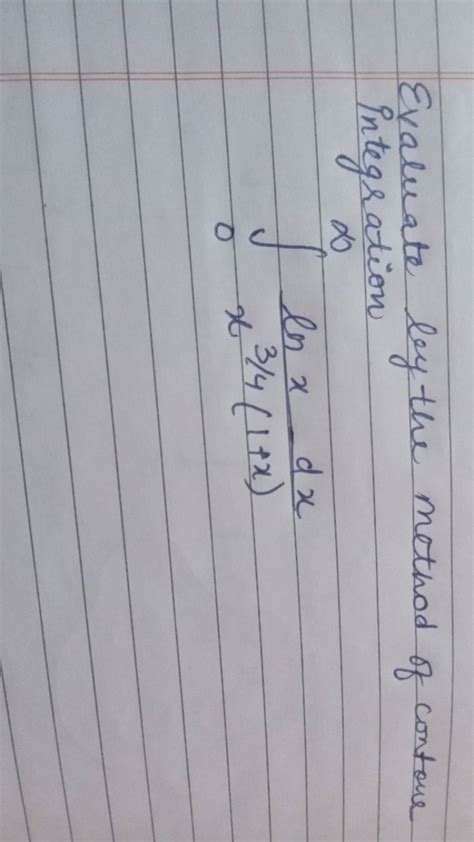 Evaluate by the method of contour
Integration
∞
∫ ln x dx
0 x^3/4 (1+x)